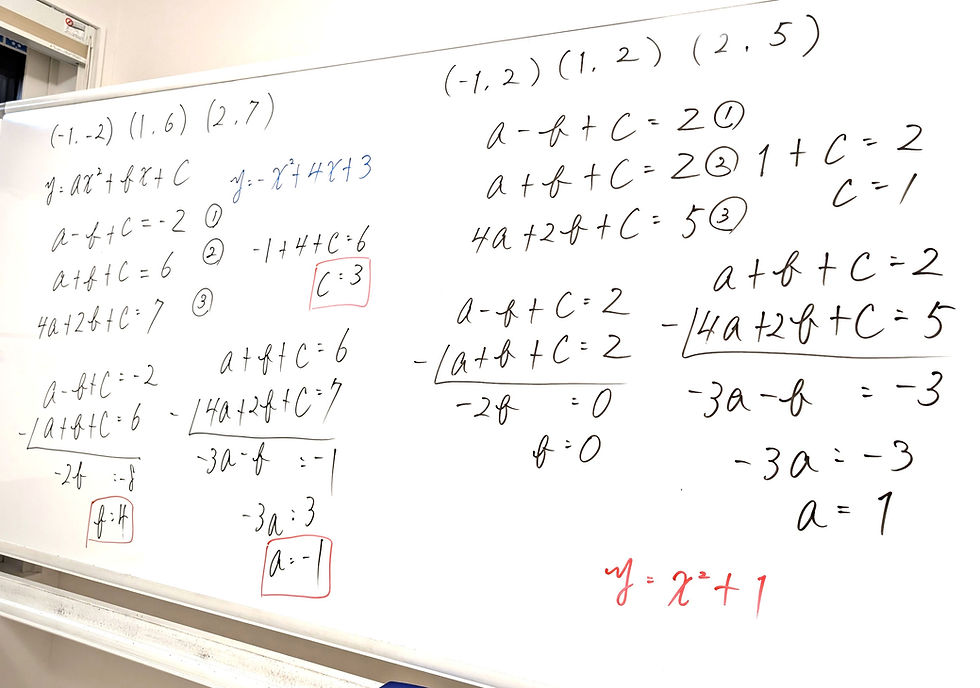 (-1,-2) (1,6) (2,7)
y=ax²+bx+c y=-x²+4x+3
a-b+c=-2 ①
a+b+c=6 ②
4a+2b+c=7 ③
-1+4+c=6
c=3
a-b+c=-2
-)a+b+c=6
-2b =-8
b=4
a+b+c=6
-)4a+2b+c=7
-3a-b =-1
-3a=3
a=-1
(-1,2) (1,2) (2,5)
a-b+c=2①
a+b+c=2②
4a+2b+c=5③
1+c=2
c=1
a-b+c=2
-)a+b+c=2
-2b =0
b=0
a+b+c=2
-)4a+2b+c=5
-3a-b =-3
-3a=-3
a=1
y=x²+1